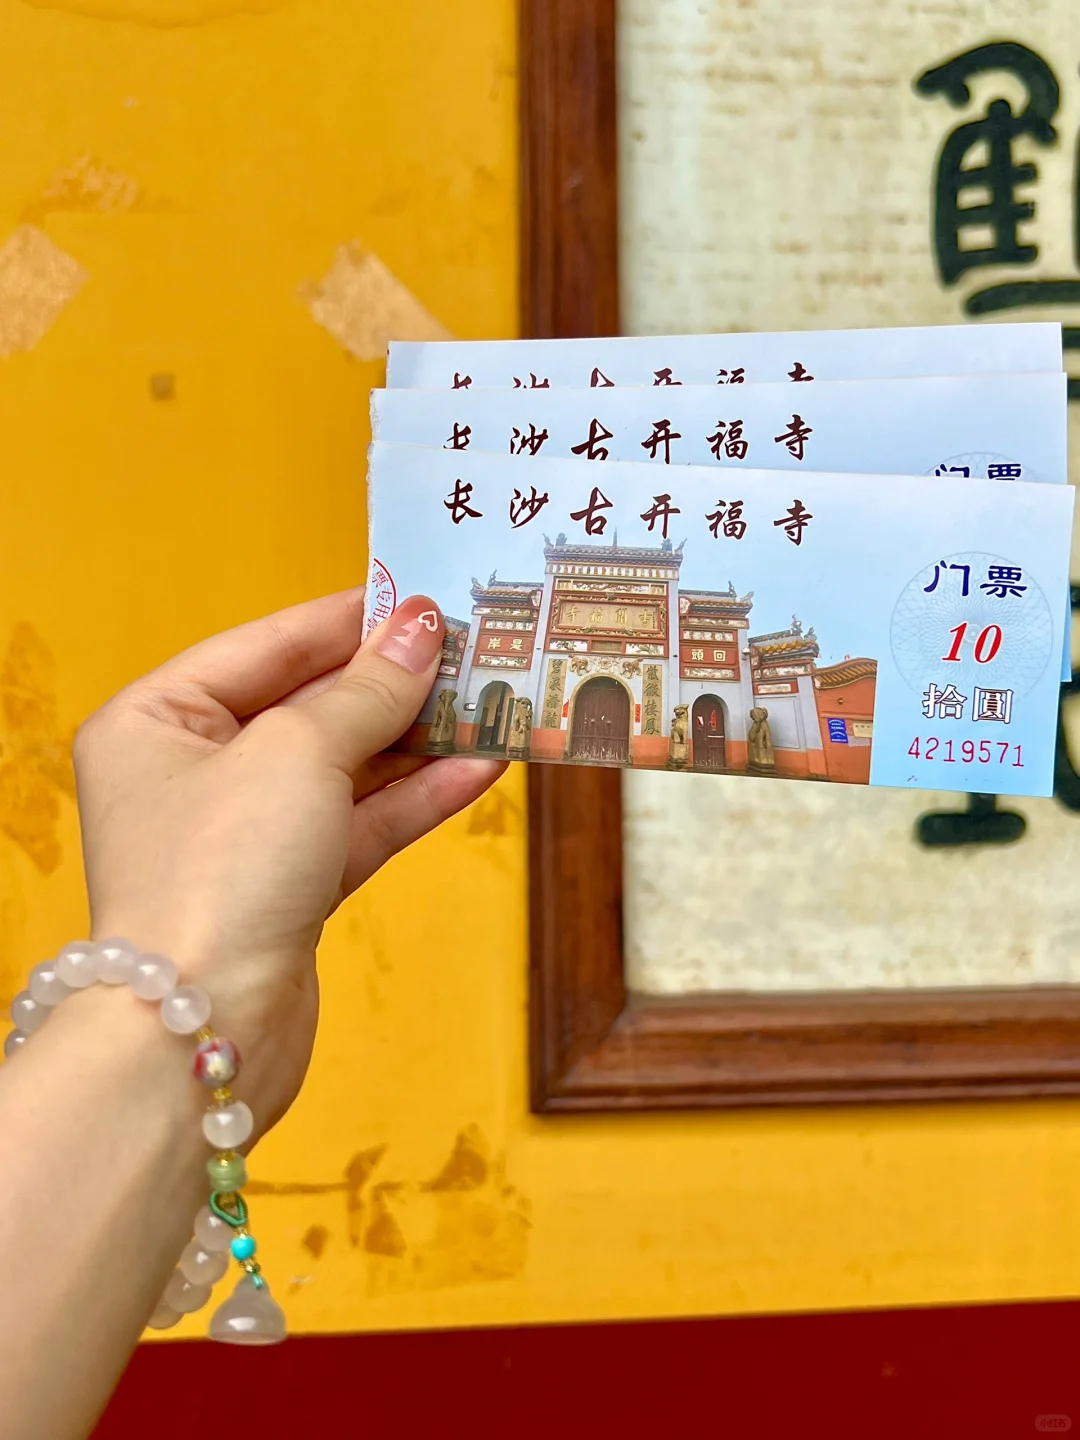 长沙古开福寺
长沙古开福寺
门票
长沙古开福寺
门票
10
拾圆
4219571
寺福開古
岸是
頭回
票专用
小红书